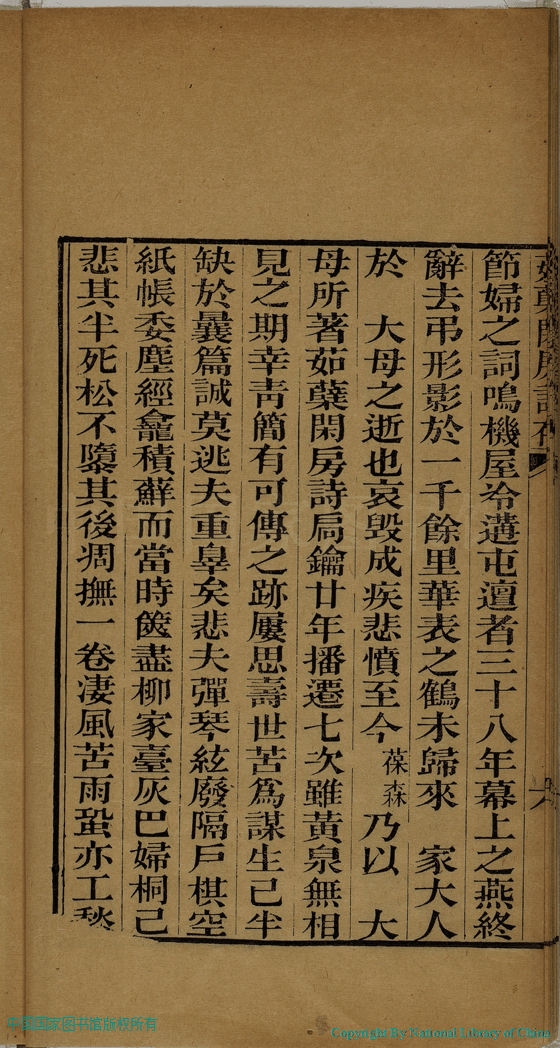 節婦之詞鳴機屋冷遘屯邅者三十八年幕上之燕終
辭去弔形影於一千餘里華表之鶴未歸來　家大人
於　大母之逝也哀毀成疾悲憤至今葆森乃以　大
母所著茹蘗閑房詩局鑰廿年播遷七次雖黃泉無相
見之期幸靑簡有可傳之跡屢思壽世苦爲謀生已半
缺於曩篇誠莫逃夫重辠矣悲夫彈琴絃廢隔戶棋空
紙帳委塵經龕積蘚而當時篋盡柳家臺灰巴婦桐已
悲其半死松不隳其後凋撫一卷淒風苦雨蛩亦工愁
中国国家图书馆版权所有
Copyright By National Library of China